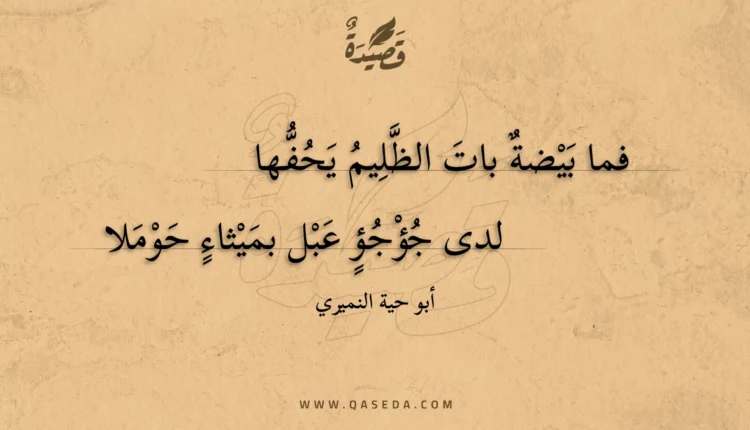 قَصِيْدَةٌ
فما بَيْضةٌ باتَ الظَّلِيمُ يَحُفُّها
لدى جُؤْجُؤٍ عَبْل بمَيْثاءٍ حَوْمَلا
أبو حية النميري
WWW.QASEDA.COM